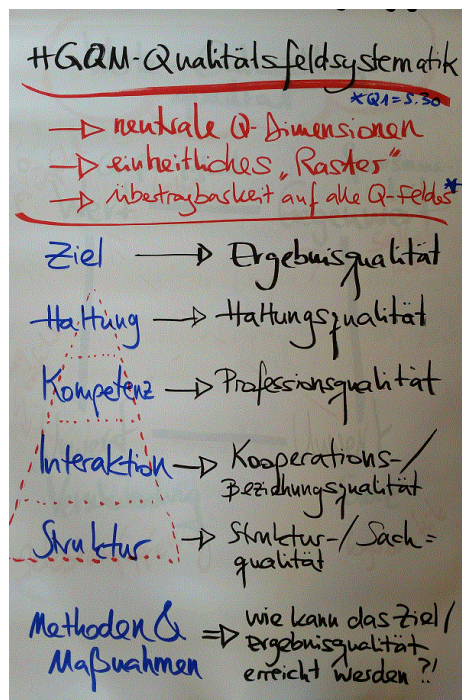 HGQM-Qualitätsfeldsystematik
*Q1=S.30
→ neutrale Q-Dimensionen
→ einheitliches „Raster"
→ übertragbarkeit auf alle Q-Felder*
Ziel → Ergebnisqualität
Haltung → Haltungsqualität
Kompetenz → Professionsqualität
Interaktion → Kooperations-/
Beziehungsqualität
Struktur → Struktur-/Sach=
qualität
Methoden & ⇒ wie kann das Ziel/
Ergebnisqualität
Maßnahmen erreicht werden?!